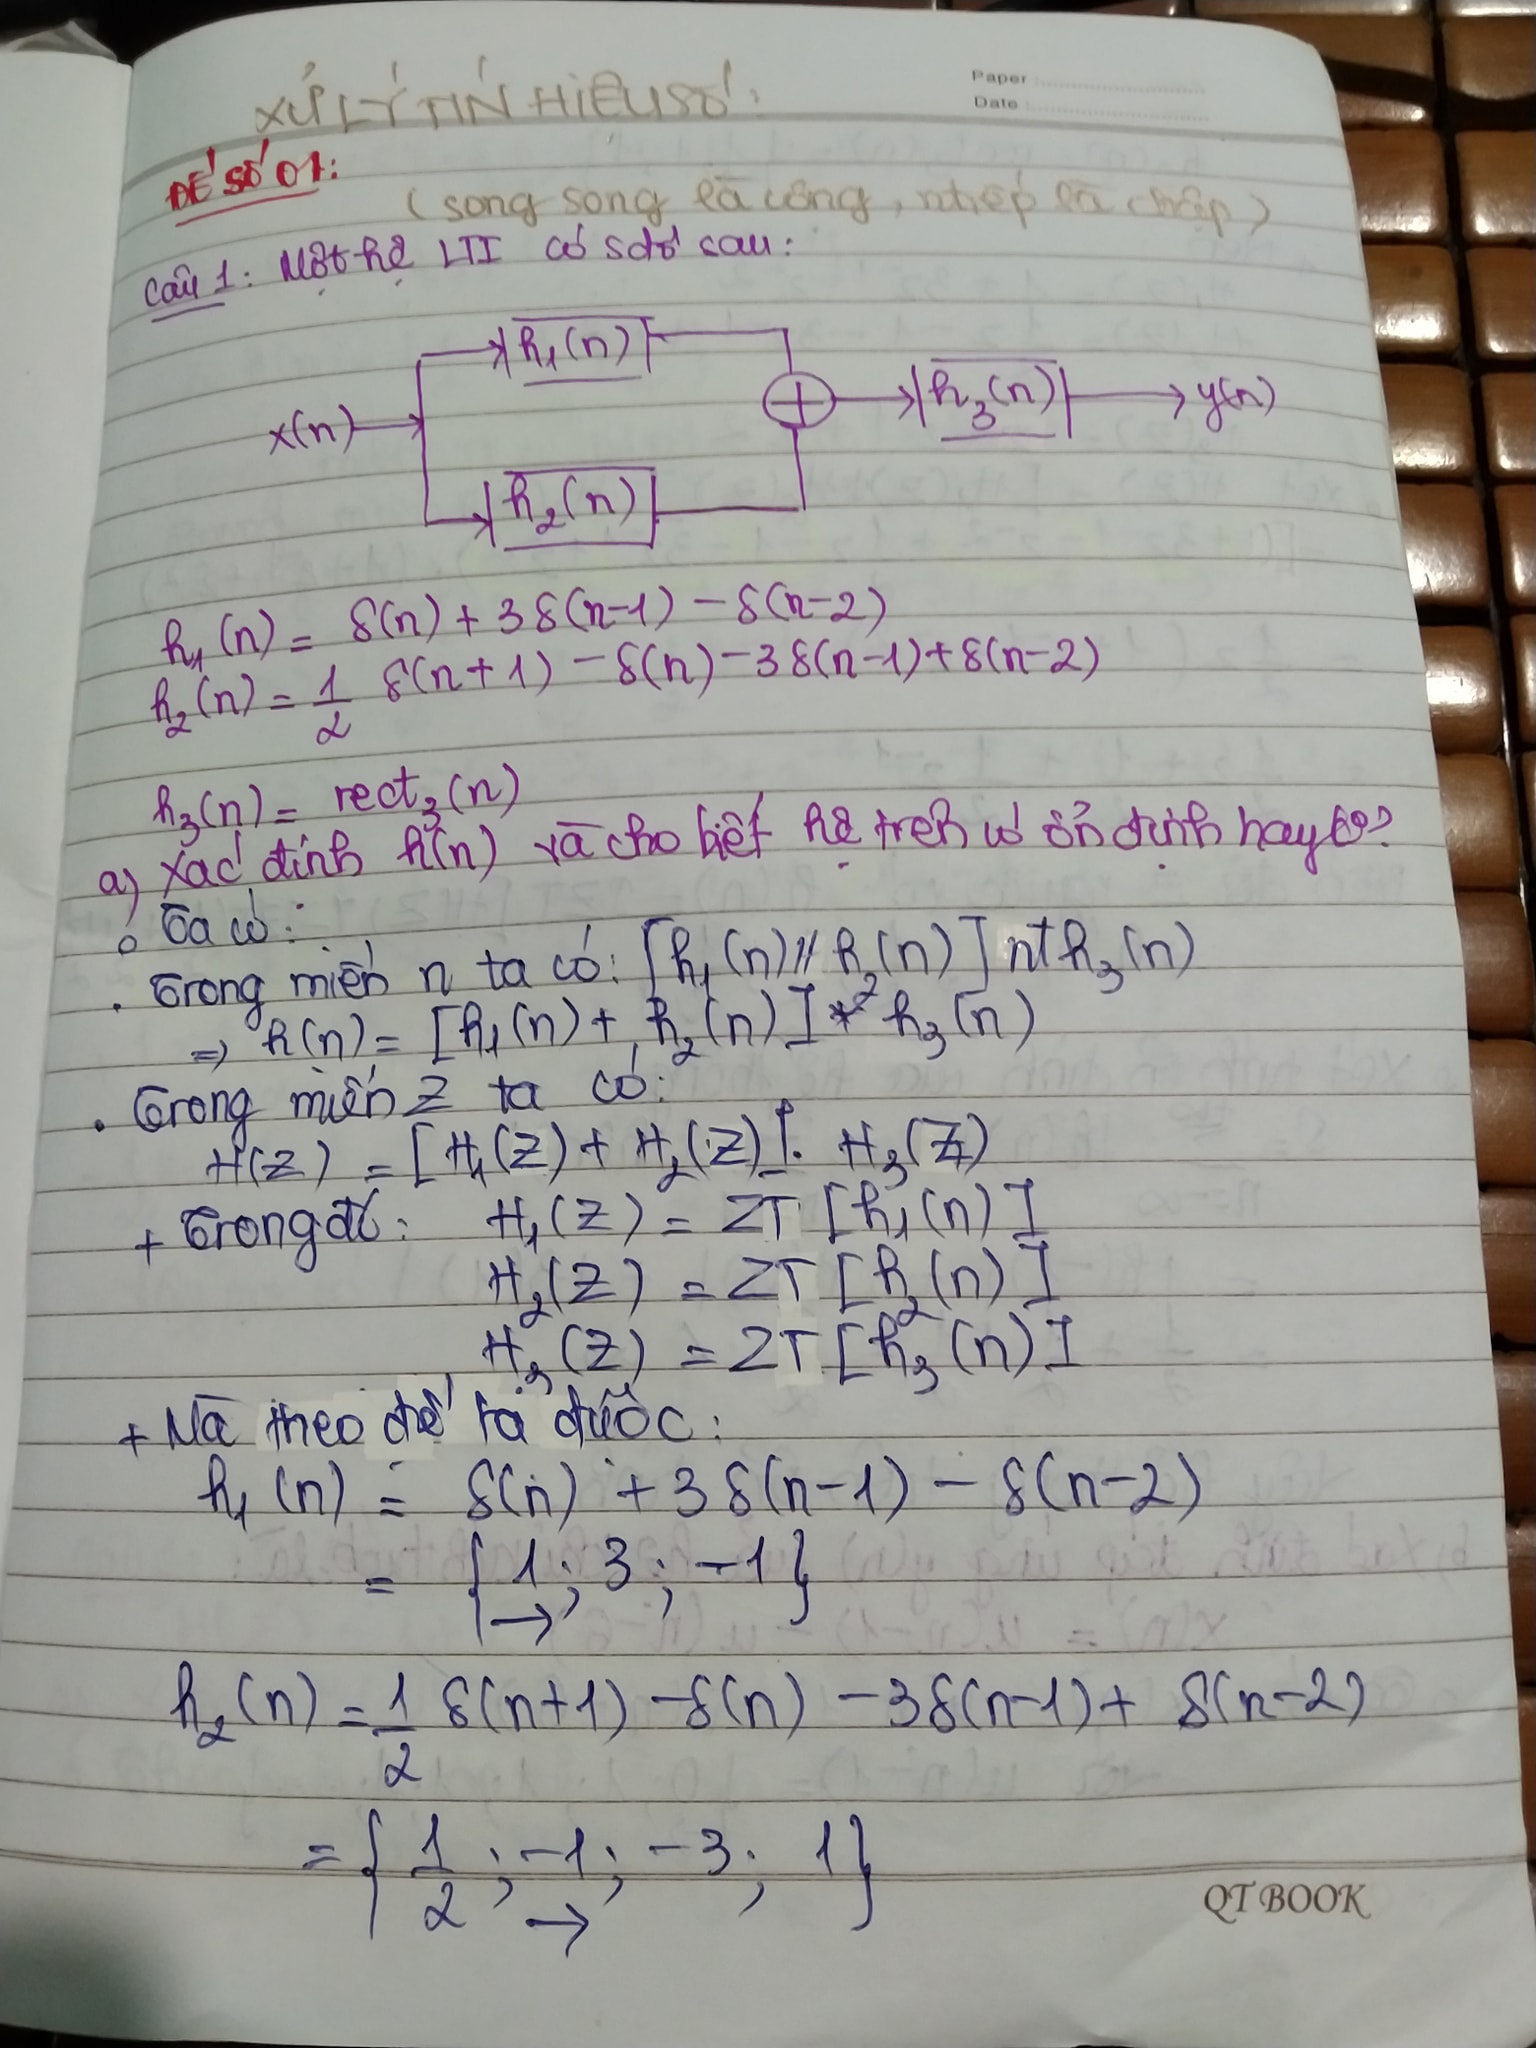 XỬ LÝ TÍN HIỆU SỐ:
Paper
Date
ĐỀ SỐ 01:
(song song là cộng, nhiếp là chập)
Câu 1: Một hệ LTI có sơ đồ sau:
h₁(n)
x(n) + h₃(n) y(n)
h₂(n)
h₁(n) = δ(n) + 3δ(n-1) - δ(n-2)
h₂(n) = 1/2 δ(n+1) - δ(n) - 3δ(n-1) + δ(n-2)
h₃(n) = rect₃(n)
a) Xác định h(n) và cho biết hệ trên có ổn định hay ko?
Ta có:
. Trong miền n ta có: [h₁(n) // h₂(n)] nt h₃(n)
=> h(n) = [h₁(n) + h₂(n)] * h₃(n)
. Trong miền Z ta có:
H(Z) = [H₁(Z) + H₂(Z)]. H₃(Z)
+ Trong đó: H₁(Z) = ZT [h₁(n)]
H₂(Z) = ZT [h₂(n)]
H₃(Z) = ZT [h₃(n)]
+ Mà theo đề ta được:
h₁(n) = δ(n) + 3δ(n-1) - δ(n-2)
= {1; 3; -1}
→
h₂(n) = 1/2 δ(n+1) - δ(n) - 3δ(n-1) + δ(n-2)
= {1/2; -1; -3; 1}
→
QT BOOK